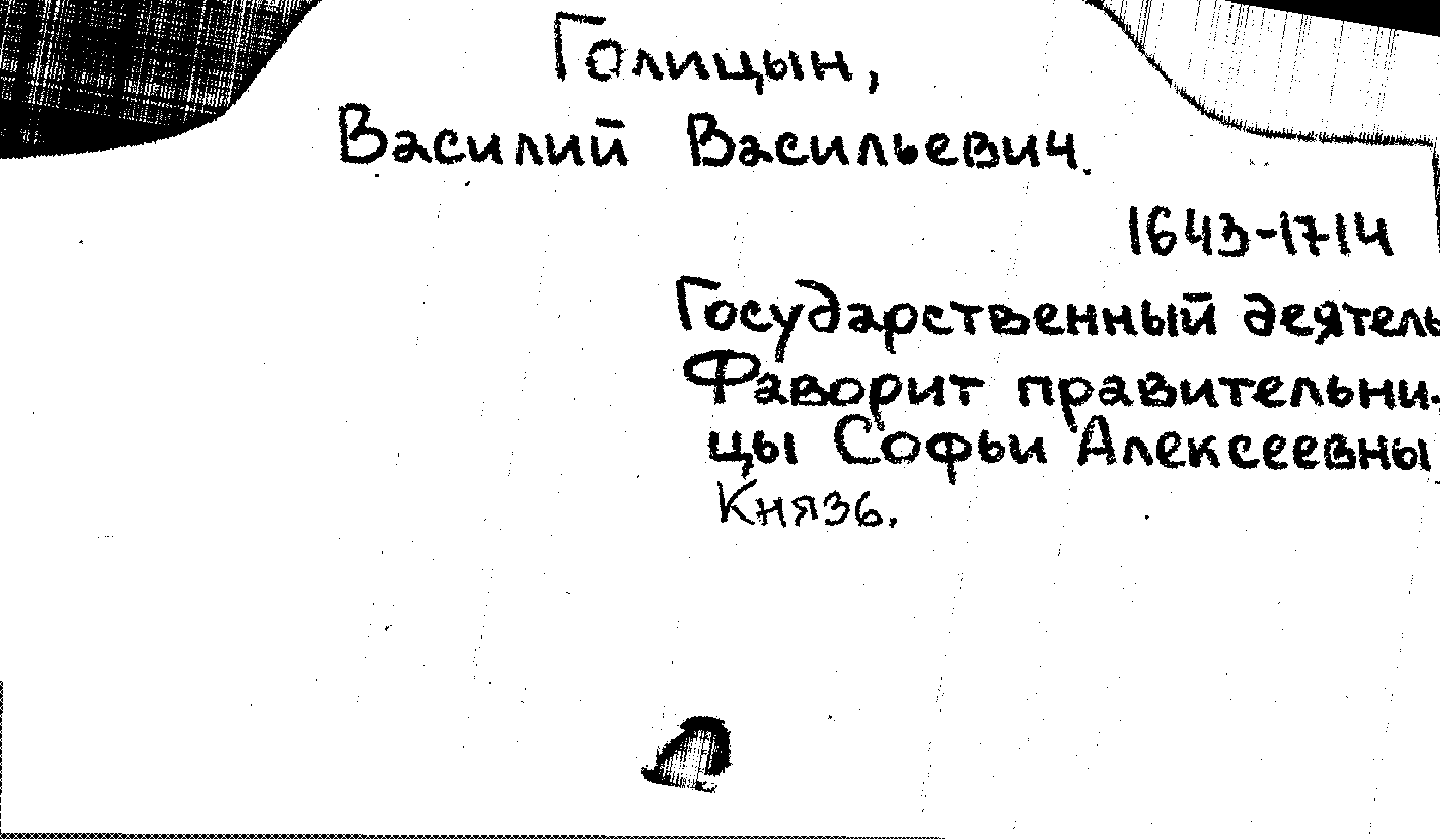 Голицын,
Василий Васильевич.
1643-1714
Государственный деятель
Фаворит правительни-
цы Софьи Алексеевны
Князь.